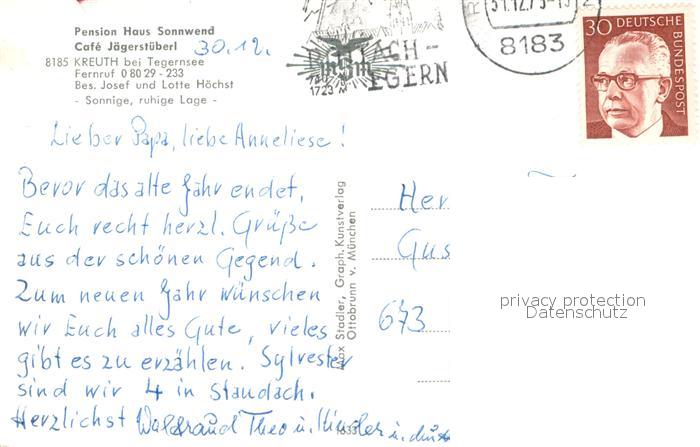 Pension Haus Sonnwend
Café Jägerstüberl
30.12.
8185 KREUTH bei Tegernsee
Fernruf 0 80 29 - 233
Bes. Josef und Lotte Höchst
- Sonnige, ruhige Lage -
1723
ACH-
EGERN
31.12.73-
8183
30 DEUTSCHE
BUNDESPOST
Lieber Papa, liebe Anneliese!
Bevor das alte Jahr endet,
Euch recht herzl. Grüße
aus der schönen Gegend.
Zum neuen Jahr wünschen
wir Euch alles Gute, vieles
gibt es zu erzählen. Sylvester
sind wir 4 in Staudach.
Herzlichst Waldraud Theo u. Kinder u.
Stadler, Graph. Kunstverlag
Ottobrunn v. München
Her
Gus
673
privacy protection
Datenschutz